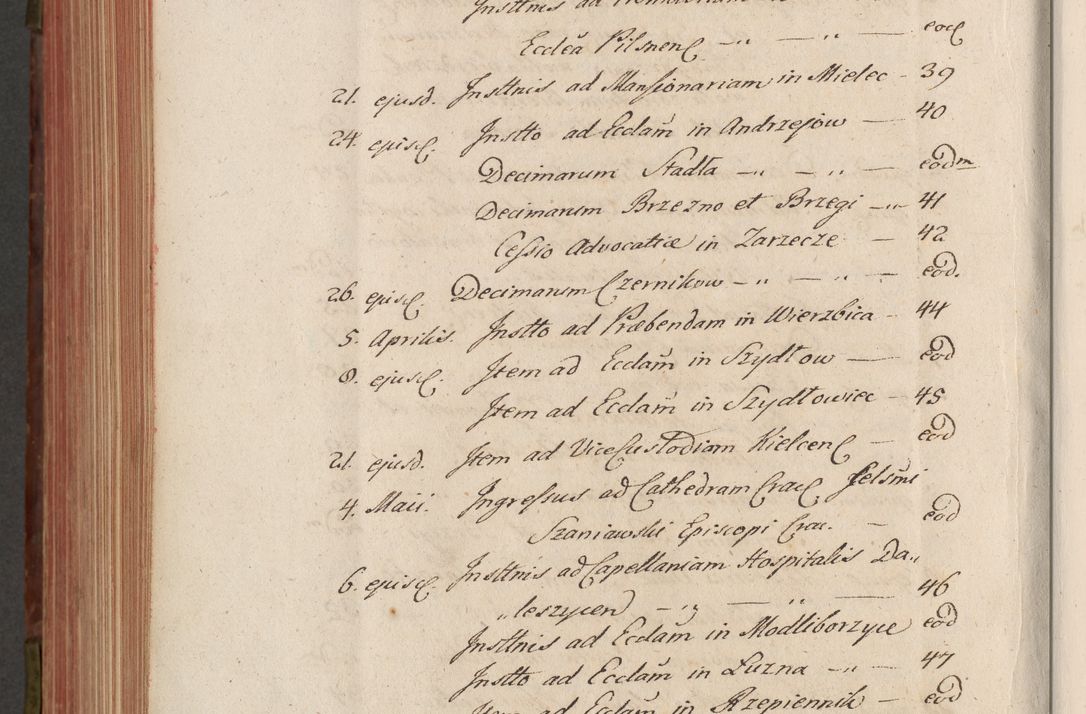 Insttnis ad
Eccłéa Pilsnen — „ — „ — eod
21. ejusd. Insttnis ad Mansionariam in Mielec - 39
24. ejusd. Instto ad Eccłam in Andrzejow — 40
Decimarum Stadła — „ — „ — eodm
Decimarum Brzezno et Brzegi — „ 41
Cessio Advocatiæ in Zarzecze — 42
26. ejusd. Decimarum Czernikow — „ — „ — eod.
5. Aprilis. Instto ad Præbendam in Wierzbica - 44
9. ejusd. Item ad Eccłam in Szydłow — eod
Item ad Eccłam in Szydłowiec - 45
21. ejusd. Item ad ViceCustodiam Kielcen — eod
4. Maii. Ingressus ad Cathedram Crac Celsmi
Szaniawski Episcopi Crac. — eod
6. ejusd. Insttnis ad Capellaniam Hospitalis Da„
„leszycen — „ — „ — 46
Insttnis ad Eccłam in Modliborzyce eod
Instto ad Eccłam in Luzna — „ — 47
Item ad Eccłam in Rzepiennik — eod